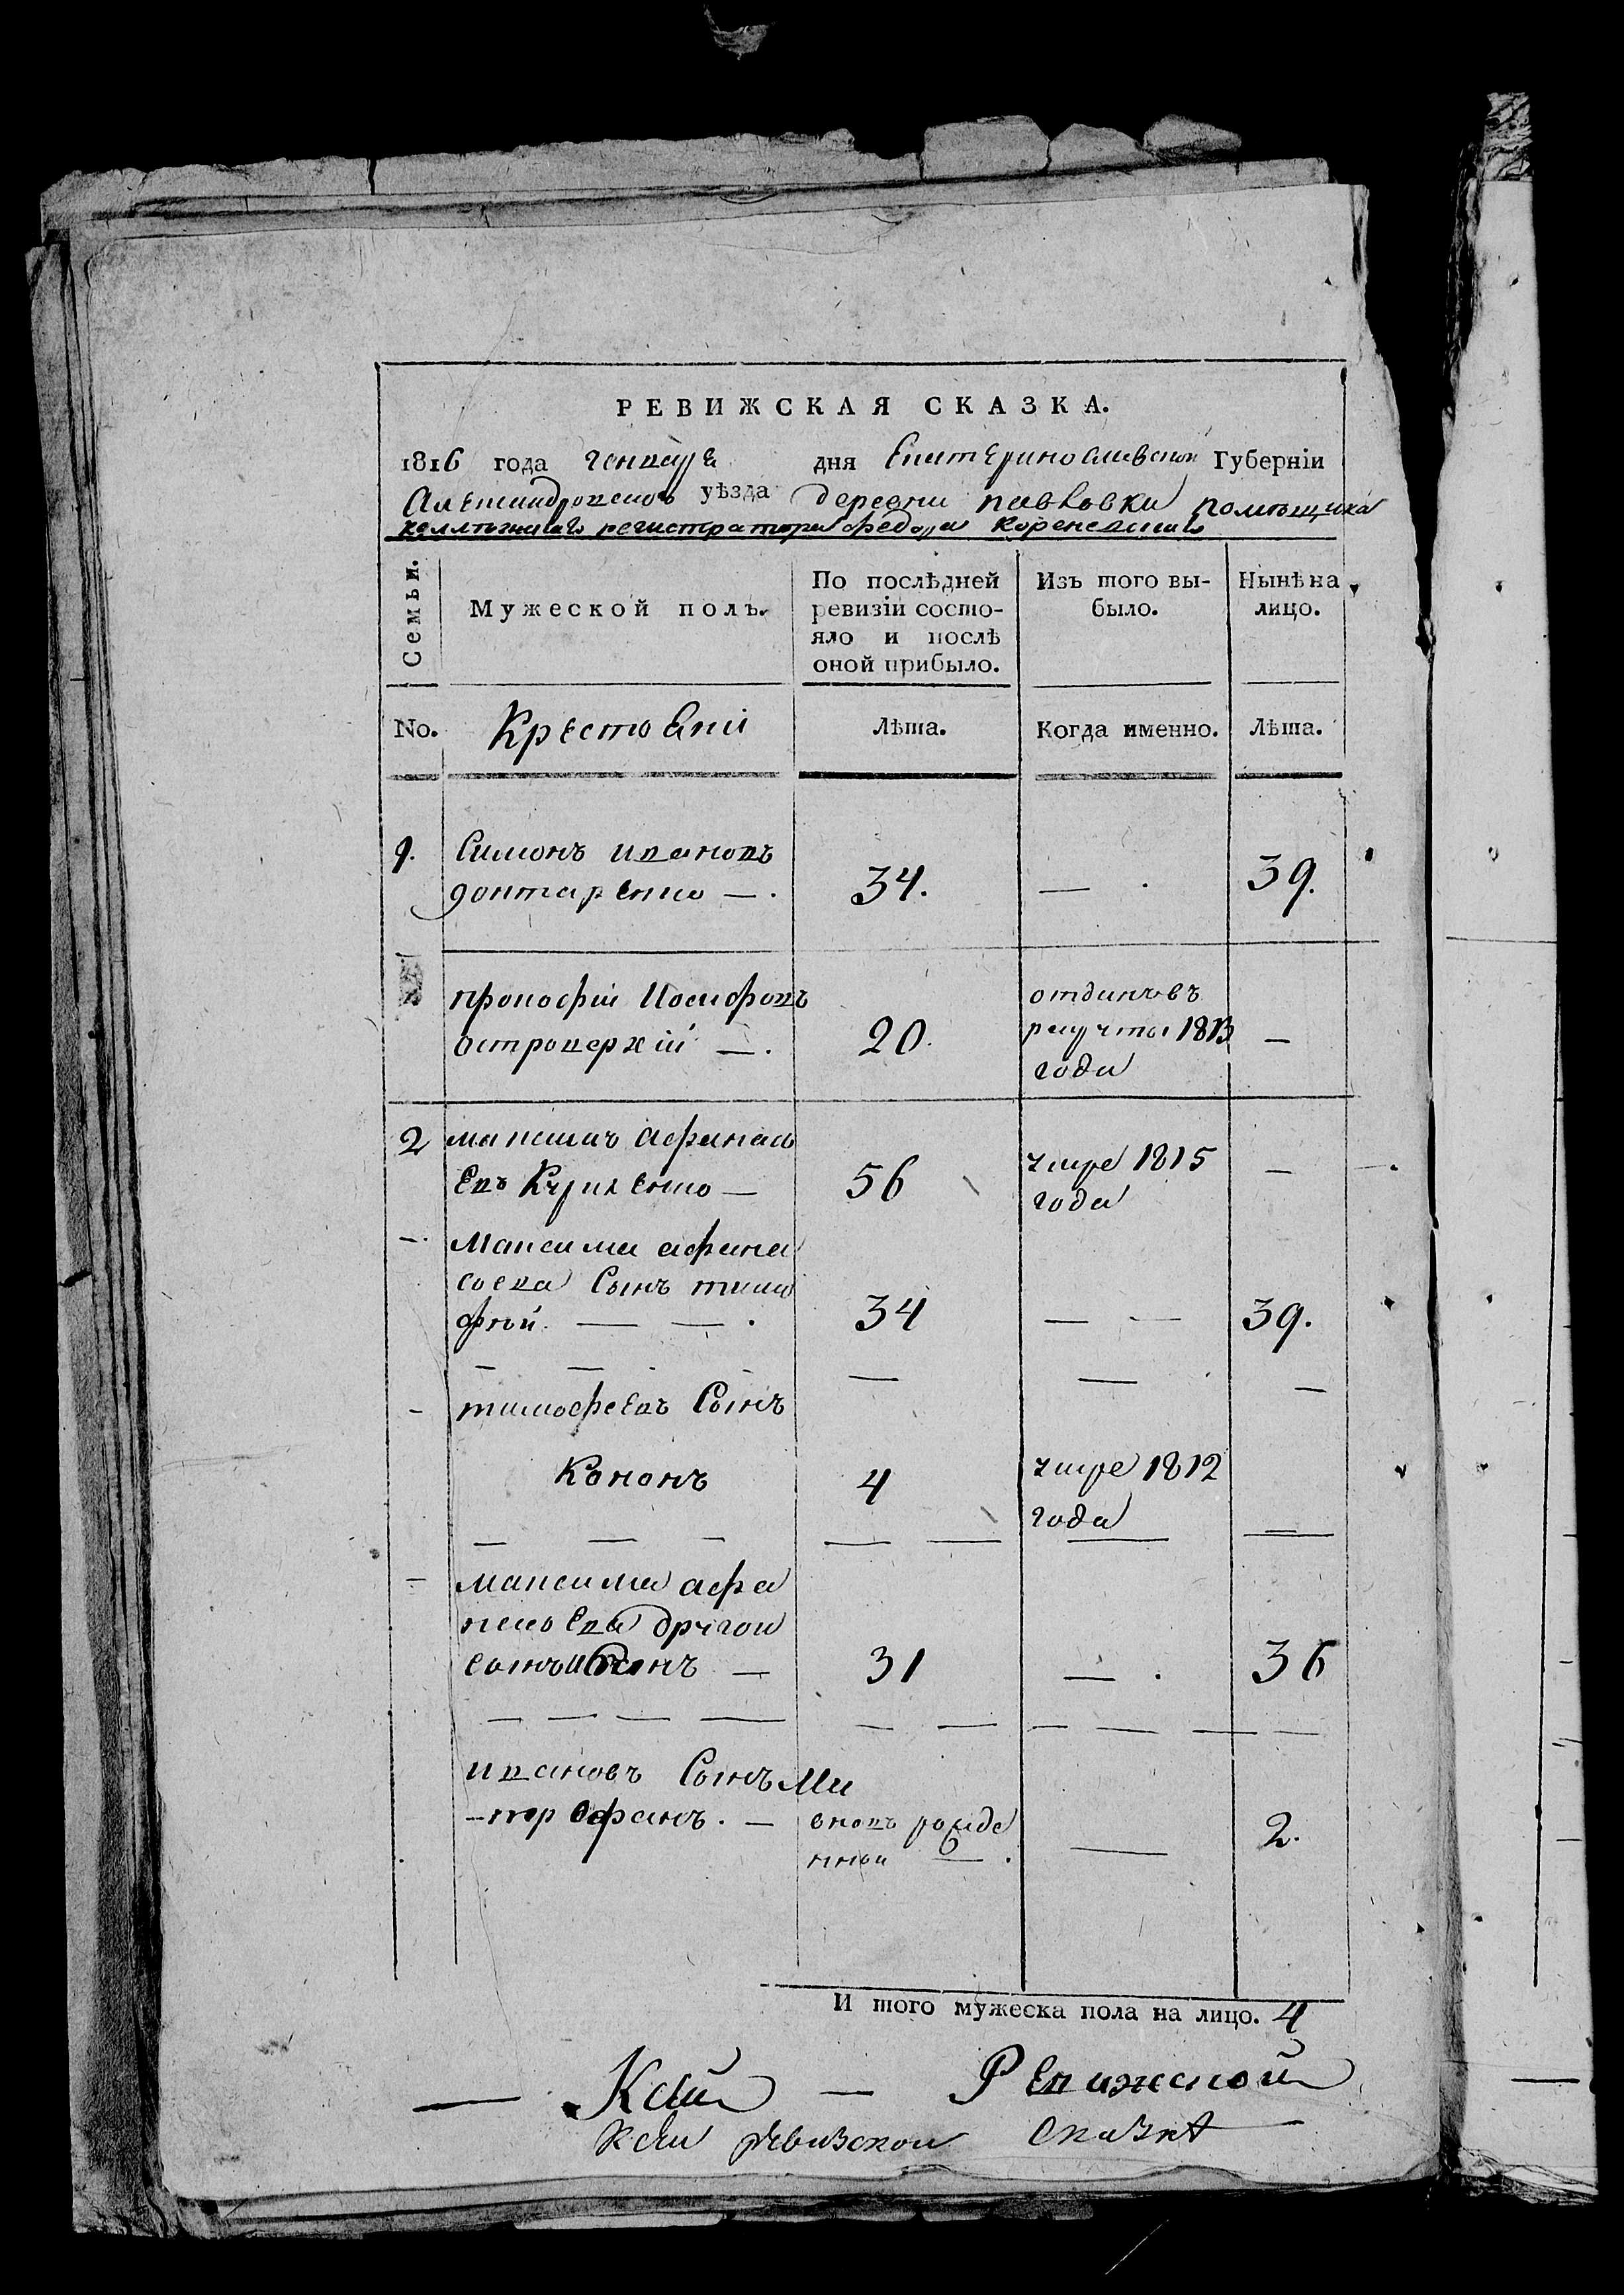 РЕВИЖСКАЯ СКАЗКА.
1816 года генваря дня Екатеринославской Губерніи
Александровскаго уѣзда деревни Павловки помѣщика
коллежскаго регистратора Федора
Семьи.
Мужеской полъ.
По послѣдней
ревизіи состо-
яло и послѣ
оной прибыло.
Изъ того вы-
было.
Нынѣ на
лицо.
No.
Крестояни
Лѣта.
Когда именно.
Лѣта.
1. Симонъ ивановъ
34. — . 39.
прокофій Иосифовъ
островерхій — . 20.
отданъ въ
рекруты 1813
года
—
2 максимъ афанась
евъ Кириленко — 56
умре 1815
года
—
—. Максима афана
сьева Сынъ тимо
фѣй. — — . 34 — — 39.
- тимофеевъ Сынъ
Кононъ 4
умре 1812
года
—
- максима афа
насьева другои
сынъ иванъ — 31 — . 36
ивановъ Сынъ Ми
-трофанъ. —
вновь рожде
нны — .
— 2.
И того мужеска пола на лицо. 4
— Ксей — Ревижской
Ксеи ревизскои сказкѣ